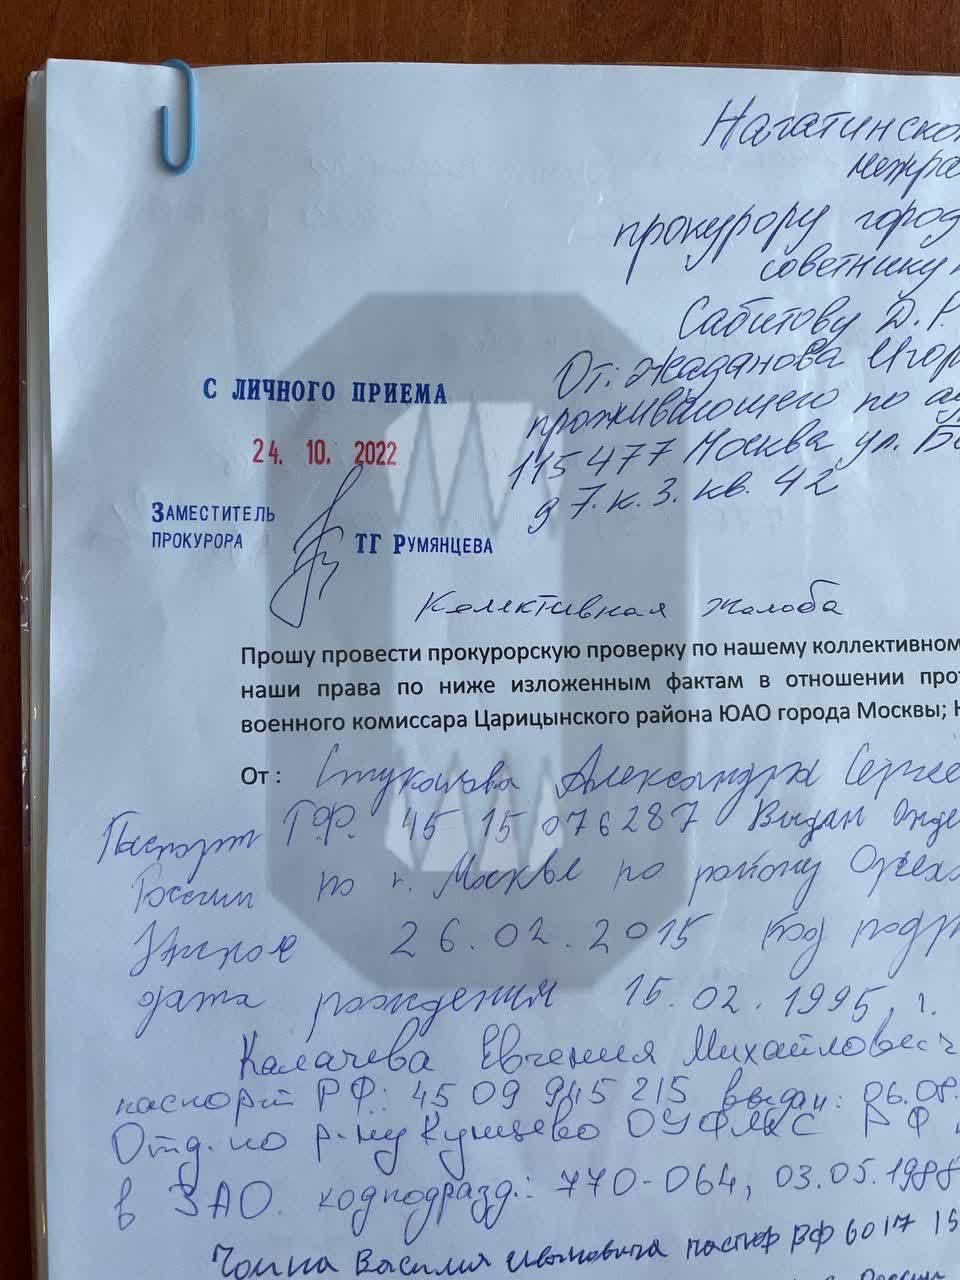 Нагатинско
межра
прокурору город
советнику
Сабитову Д.Р.
От: Жаданова Игор
проживающего по ад
115477 Москва ул. Б
д 7. к. 3. кв. 42
С ЛИЧНОГО ПРИЕМА
24. 10. 2022
ЗАМЕСТИТЕЛЬ
ПРОКУРОРА
ТГ РУМЯНЦЕВА
Колективная жалоба
Прошу провести прокурорскую проверку по нашему коллективном
наши права по ниже изложенным фактам в отношении прот
военного комиссара Царицынского района ЮАО города Москвы; Н
От : Стукалова Александра Серге
Паспорт РФ. 45 15 076287 Выдан Отде
России по г. Москве по району Орехо
26.02.2015 код подр
дата рождения 15.02.1995 г.
Калачева Евгения Михайлович
паспорт РФ: 45 09 945 215 выдан: 06.08.
Отд. по р-ну Кунцево ОУФМС РФ
в ЗАО. код подразд.: 770-064, 03.05.1988
Василия Ивановича паспор РФ 6017 15
России